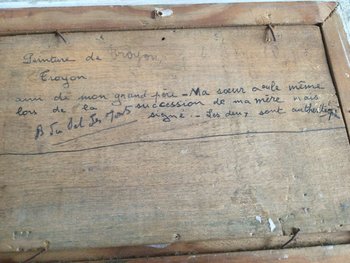 Peinture de Troyon
Troyon
ami de mon grand père - Ma soeur a le même
lors de la succession de ma mère mais
signé - Les deux sont authentique